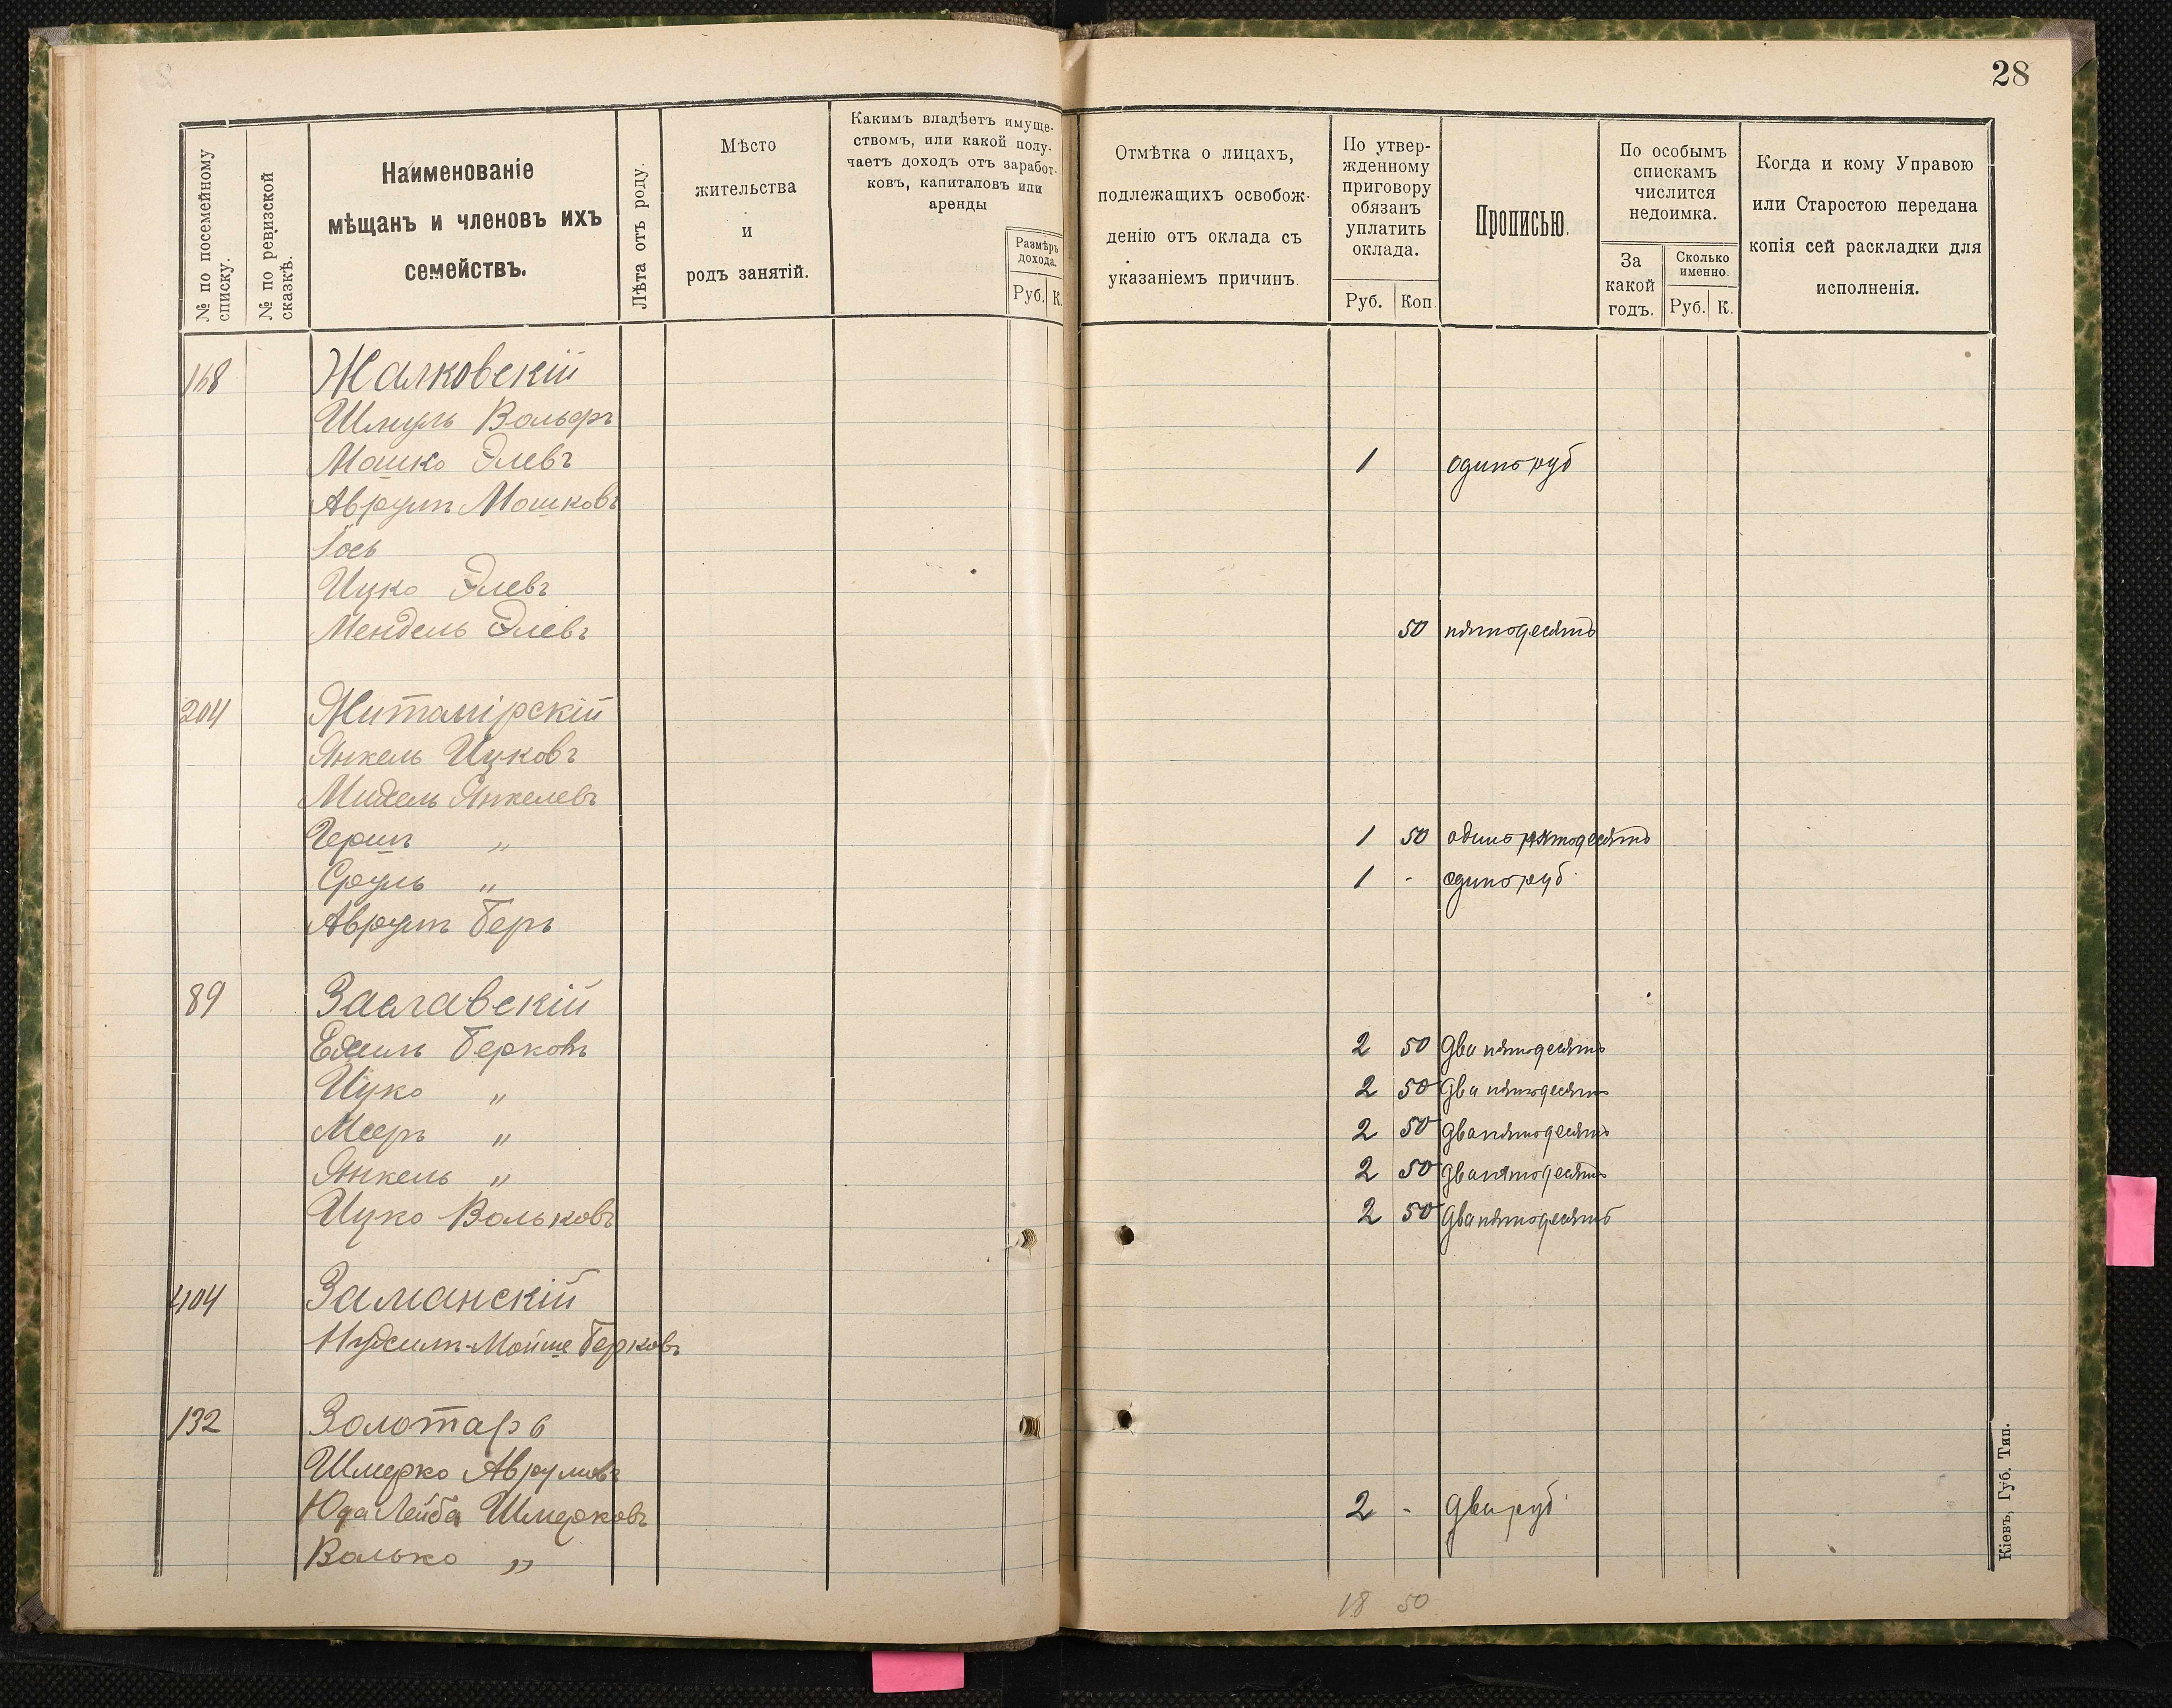 28
№ по посемейному списку.
№ по ревизской сказкѣ.
Наименованіе
мѣщанъ и членовъ ихъ
семействъ.
Лѣта отъ роду.
Мѣсто
жительства
и
родъ занятій.
Какимъ владѣетъ имуще-
ствомъ, или какой полу-
чаетъ доходъ отъ заработ-
ковъ, капиталовъ или
аренды
Размѣръ
дохода.
Руб. К.
Отмѣтка о лицахъ,
подлежащихъ освобож-
денію отъ оклада съ
указаніемъ причинъ.
По утвер-
жденному
приговору
обязанъ
уплатить
оклада.
Руб. Коп.
Прописью.
По особымъ
спискамъ
числится
недоимка.
За
какой
годъ.
Сколько
именно.
Руб. К.
Когда и кому Управою
или Старостою передана
копія сей раскладки для
исполненія.
168 Жалковскій
Шмуль Вольфъ
Мошко Элевъ 1 одинъ руб
Аврумъ Мошковъ
Іось
Ицко Элевъ
Мендель Элевъ 50 пятьдесятъ
204 Житомірскій
Янкель Ицковъ
Янкелевъ
Гершъ " 1 50 одинъ пятьдесятъ
Сруль " 1 - одинъ руб.
Аврумъ Беръ
89 Заславскій
Берковъ 2 50 два пятьдесятъ
Ицко " 2 50 два пятьдесятъ
Мееръ " 2 50 два пятьдесятъ
Янкель " 2 50 два пятьдесятъ
Ицко Вольковъ 2 50 два пятьдесятъ
404 Заманскій
Мойше Берковъ
132 Золотарь
Шмерко Аврумовъ
Юда Лейба Шмерковъ 2 - два руб.
Волько "
18 50
Кіевъ, Губ. Тип.